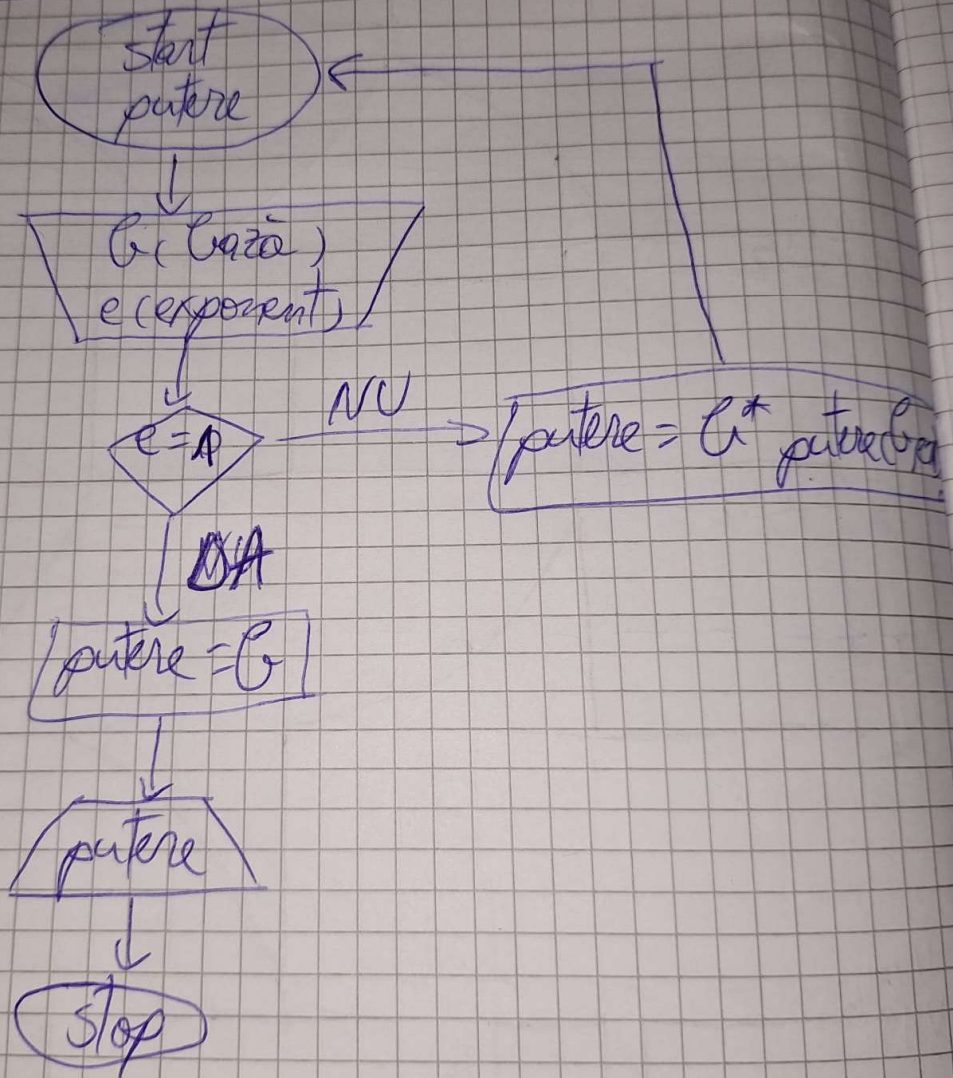 start
putere
b(bază)
e(exponent)
e=1
NU
putere = b* putere(b,e
DA
putere=b
putere
stop